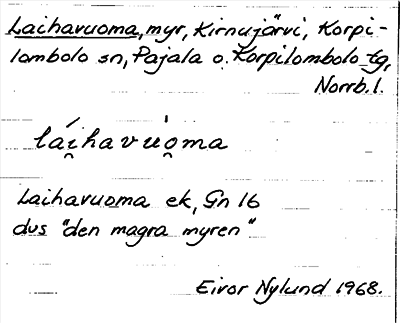 Laihavuoma, myr, Kirnujärvi, Korpi-
lombolo sn, Pajala o. Korpilombolo tg,
Norrb. l.
lái̯havuȯ̯ma
Laihavuoma ek, Gn 16
dvs "den magra myren"
Eivor Nylund 1968.